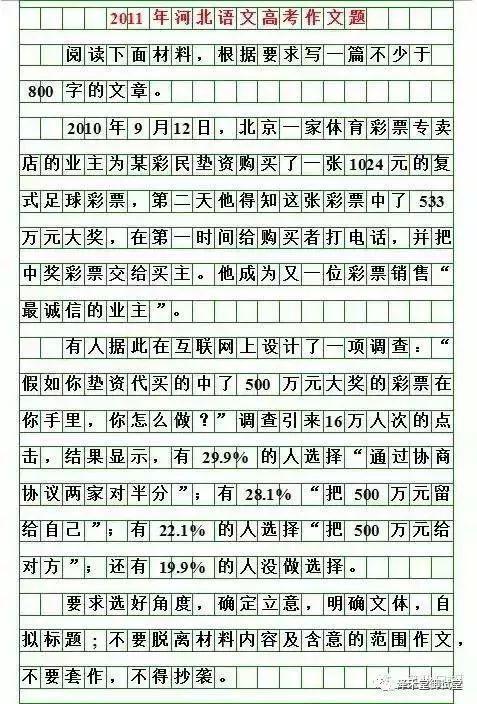 2011年河北语文高考作文题
阅读下面材料，根据要求写一篇不少于
800字的文章。
2010年9月12日，北京一家体育彩票专卖
店的业主为某彩民垫资购买了一张1024元的复
式足球彩票，第二天他得知这张彩票中了533
万元大奖，在第一时间给购买者打电话，并把
中奖彩票交给买主。他成为又一位彩票销售“
最诚信的业主”。
有人据此在互联网上设计了一项调查：“
假如你垫资代买的中了500万元大奖的彩票在
你手里，你怎么做？”调查引来16万人次的点
击，结果显示，有29.9%的人选择“通过协商
协议两家对半分”；有28.1%“把500万元留
给自己”；有22.1%的人选择“把500万元给
对方”；还有19.9%的人没做选择。
要求选好角度，确定立意，明确文体，自
拟标题；不要脱离材料内容及含意的范围作文，
不要套作，不得抄袭。